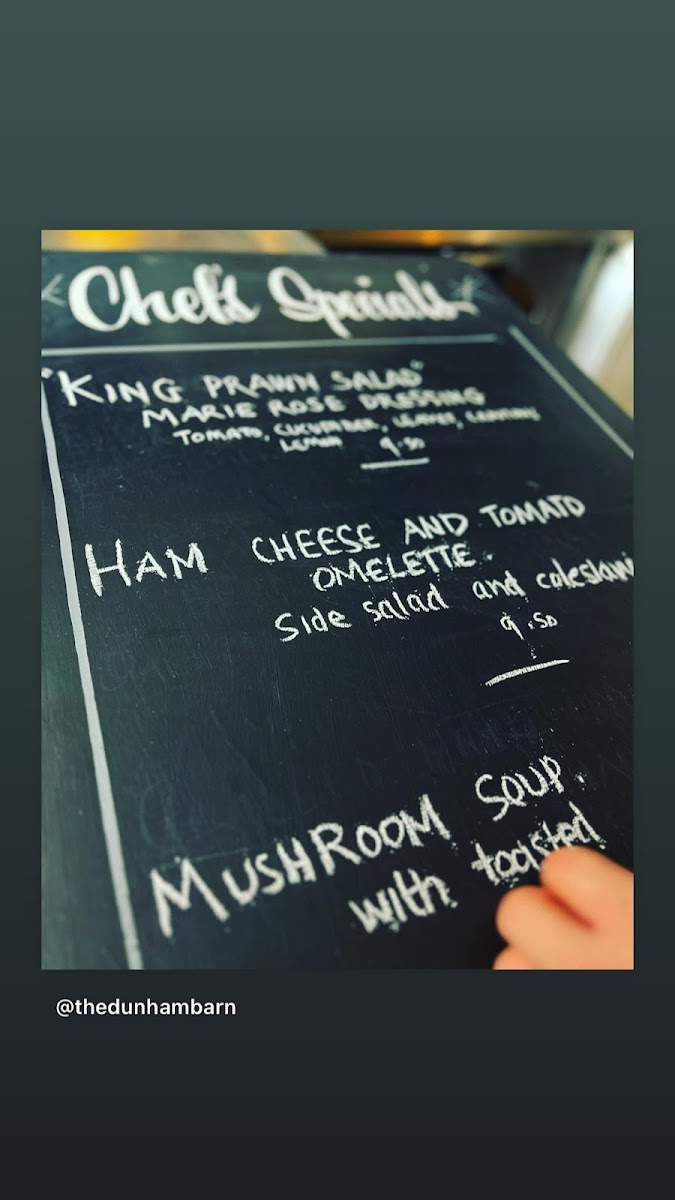 Chef's Specials
"KING PRAWN SALAD"
MARIE ROSE DRESSING
TOMATO, CUCUMBER, LEAVES,
LEMON 9.50
HAM CHEESE AND TOMATO
OMELETTE.
Side salad and coleslaw
9.50
MUSHROOM SOUP.
with toasted
@thedunhambarn